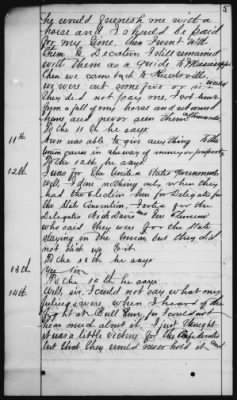 5
he would furnish me with a
horse and I should be paid
for my time, then I went with
them to Decatur I still remained
with them as a guide to Mississippi
then we came back to Huntsville,
we were out some five or six weeks
they did not pay me, I got hurt
from a fall of my horse and returned
home and never seen them afterwards
To the 11th he says
11th
I was not able to give anything to the
Union cause in the way of money or property
To the 12th he says
12th
I was for the United States Government
well, I done nothing only when they
had the Election then for Delegates for
the State Convention I voted for the
Delegates Nick Davis and Jere Clemens
who said they were for the State
staying in the Union but they did
not stick up to it.
To the 13th he says
13th
No Sir
To the 14th he says
14th
Well, sir, I could not say what my
feelings were when I heard of the
fight at Bull Run, for I could not
hear much about it, I just thought
it was a little victory for the Confederates
but that they would never hold it and